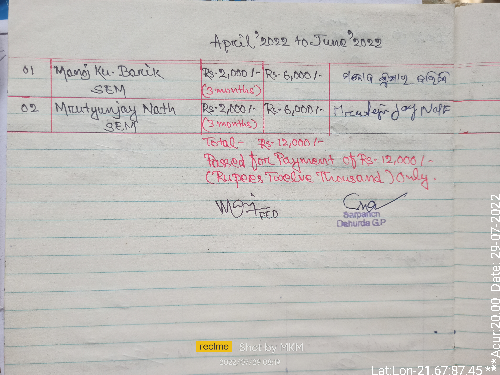 April' 2022 to June' 2022
01 Manoj Ku. Barik Rs-2,000/- Rs-6,000/- ମନୋଜ କୁମାର ବାରିକ
SEM (3 months)
02 Mrutyunjay Nath Rs-2,000/- Rs-6,000/- Mrutyunjay Nath
SEM (3 months)
Total- Rs-12,000/-
Passed for Payment of Rs-12,000/-
(Rupees Twelve Thousand) Only.
PEO
Sarpanch
Dahurda G.P
realme Shot by MKM
Lat Lon-21.67,87.45
***Acur:20.00, Date: 29-07-2022